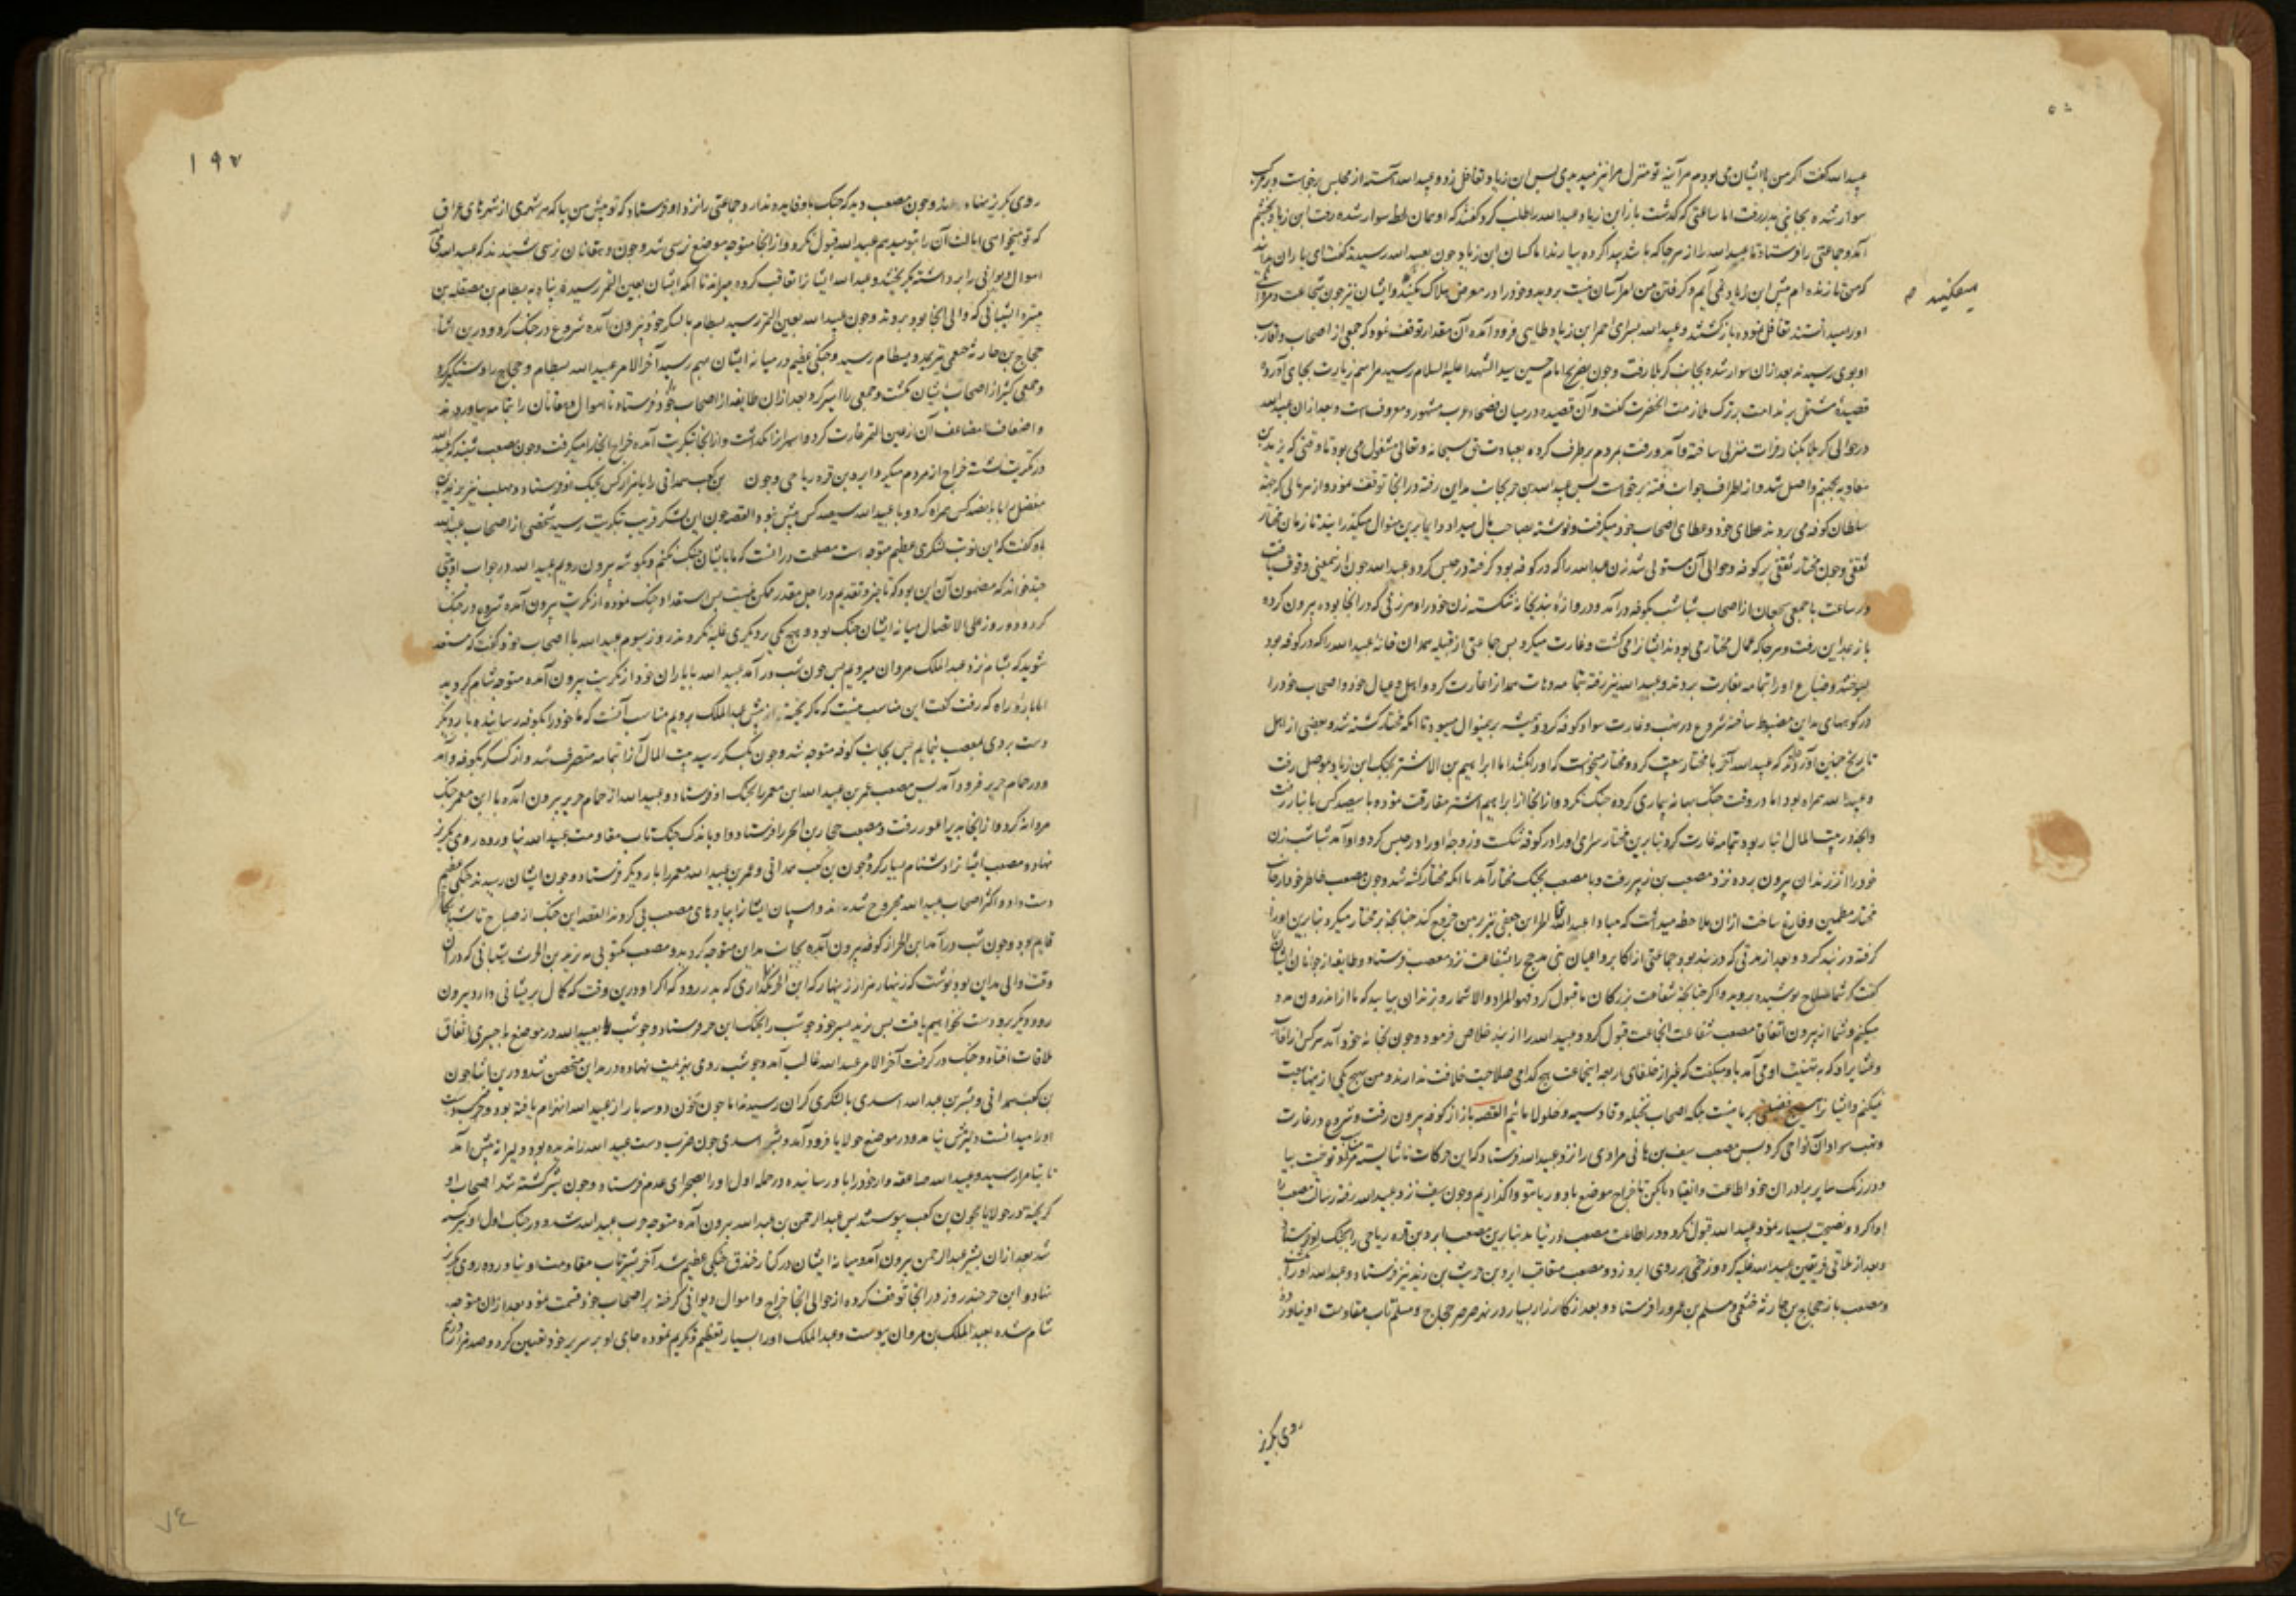 عبیدالله گفت اگر من با ایشان می بودم هر آینه تو منزل مرا نیز میدیدی پس ابن زیاد تغافل زد و عبیدالله آهسته از مجلس برخاست و بر مرکب
سوار شده بجانبی بدر رفت اما ساعتی که گذشت باز ابن زیاد عبیدالله را طلب کرد گفتند که او همان لحظه سوار شده رفت ابن زیاد بخشم
آمد و جماعتی را فرستاد تا عبیدالله را از هر جا که باشد پیدا کرده بیارند اما کسان ابن زیاد چون بعبیدالله رسیدند گفت ای یاران
که من تا زنده ام پیش ابن زیاد نمی آیم و گرفتن من امر آسان نیست بروید و خود را در معرض هلاک میفکنید و ایشان نیز چون شجاعت
میفکنید
او را میدانستند تغافل نموده بازگشتند و عبیدالله بسرای احمر ابن زیاد طایی فرود آمده آن مقدار توقف نمود که جمعی از اصحاب و اقارب
او بوی رسیدند بعد از آن سوار شده بجانب کربلا رفت و چون بضریح امام حسین سید الشهدا علیه السلام رسید مراسم زیارت بجای آورد و
قصیدهٔ مشتمل بر ندامت بر ترک ملازمت آنحضرت گفت و آن قصیده در میان فصحاء عرب مشهور و معروفست و بعد از آن عبیدالله
در حوالی کربلا بکنار فرات منزلی ساخته و آمد و رفت بمردم بر طرف کرده بعبادت حق سبحانه و تعالی مشغول می بود تا وقتی که یزید بن
معاویه بجهنم واصل شد و از اطراف جوانب فتنه برخاست پس عبیدالله بن حر بجانب مداین رفته در آنجا توقف نمود و از هر مالی که جهة
سلطان کوفه می بردند عطای خود و عطای اصحاب خود میگرفت و نوشته بصاحب مال میداد و ایام برین منوال میگذرانید تا زمان مختار
ثقفی و چون مختار ثقفی بر کوفه و حوالی آن مستولی شد زن عبیدالله را که در کوفه بود گرفته در حبس کرد و عبیدالله چون ازینمعنی وقوف یافت
در ساعت با جمعی از اصحاب شباشب بکوفه درآمد و دروازه بندیخانه شکسته زن خود را و هر زنی که در آنجا بوده بیرون کرده
باز بمداین رفت و هر جا که عمال مختار می بودند ایشانرا می کشت و غارت میکرد پس جماعتی از قبیله همدان خانه عبیدالله را که در کوفه بود
بسوختند و ضیاع او را بتمامه بغارت بردند و عبیدالله نیز رفته بتمامه دهات همدانرا غارت کرد و اهل و عیال خود و اصحاب خود را
در کوههای مداین مضبوط ساخته شروع در نهب و غارت سواد کوفه کرد و همیشه برینمنوال میبود تا آنکه مختار کشته شد و بعضی از اهل
تاریخ چنین آورده اند که عبیدالله آخر با مختار بیعت کرد و مختار میخواست که او را بکشد اما ابراهیم بن الاشتر بجنگ ابن زیاد بموصل رفت
و عبیدالله همراه بود اما در وقت جنگ بهانه بیماری کرده جنگ نکرد و از آنجا از ابراهیم اشتر مفارقت نموده با سیصد کس بانبار رفت
و آنچه در بیت المال انبار بود بتمامه غارت کرد بنابرین مختار سرای او را در کوفه شکست و زوجه او را در حبس کرد و او آمد شباشب زن
خود را از زندان بیرون برده نزد مصعب بن زبیر رفت و با مصعب بجنگ مختار آمد تا آنکه مختار کشته شد و چون مصعب خاطر خود از جانب
مختار مطمئن و فارغ ساخت از آن ملاحظه میداشت که مبادا عبیدالله الحر ابن جعفی نیز بر من خروج کند چنانچه بر مختار میکرد بنابرین او را
گرفته در بند کرد و بعد از مدتی که در بند بود جماعتی از اکابر و اعیان بنی مذحج را بشفاعت نزد مصعب فرستاد و طایفه از جوانان ایشان
گفت که شما سلاح پوشیده بروید و اگر چنانچه شفاعت بزرگان ما قبول کرد فهو المراد و الا شما رو بزندان بیایید که ما از اندرون مدد
میکنیم و شما از بیرون اتفاقا مصعب شفاعت آنجماعت قبول کرد و عبیدالله را از بند خلاص فرمود و چون بخانه خود آمد هر کس از اقارب
و عشایر او که به تهنیت او می آمد باو میگفت که غیر از خلفای اربعه اینجماعت هیچ کدامی صلاحیت خلافت ندارند و من بهیچ یکی از اینها بیعت
نمیکنم و ایشانرا هیچ فضلی بر ما نیست بلکه اصحاب نخیله و قادسیه و جلولا ماییم القصه باز از کوفه بیرون رفت و شروع در غارت
و نهب سواد آن نواحی کرد پس مصعب سیف بن هانی مرادی را نزد عبیدالله فرستاد که این حرکات ناشایسته
و در رنگ سایر برادران خود اطاعت و انقیاد ما کن تا خراج موضع بادوریا بتو واگذاریم و چون سیف نزد عبیدالله رفته رسالت مصعب را
ادا کرد و نصیحت بسیار نمود عبیدالله قبول نکرد و در اطاعت مصعب در نیامد بنابرین مصعب ابرد بن قره ریاحی را بجنگ او فرستاد
و بعد از تلاقی فریقین عبیدالله غلبه کرد و زخمی بر روی ابرد زد و مصعب متعاقب ابرد بن حریث بن زید نیز فرستاد و عبیدالله او را
و مصعب باز حجاج بن حارثه خثعمی و مسلم بن عمرو را فرستاد و بعد از کارزار بسیار در نهر صرصر حجاج و مسلم تاب مقاومت او نیاورده
روی بگریز
۱۹۷
روی بگریز نهادند و چون مصعب دید که جنگ با او فایده ندارد جماعتی را نزد او فرستاد که تو پیش من بیا که هر شهری از شهرهای عراق
که تو میخواهی ایالت آن را بتو میدهم عبیدالله قبول نکرد و از آنجا متوجه موضع نرسی شد و چون دهقانان نرسی شنیدند که عبیدالله می آید
اموال دیوانی را برداشته بگریختند و عبیدالله ایشانرا تعاقب کرده میراند تا آنکه ایشان بعین التمر رسیدند پناه به بسطام بن مصقله بن
هبیره الشیبانی که والی آنجا بود بردند و چون عبیدالله بعین التمر رسید بسطام با لشکر خود بیرون آمده شروع در جنگ کرد و درین اثنا
حجاج بن حارثه خثعمی بمدد بسطام رسید و جنگی عظیم در میانه ایشان بهم رسید آخر الامر عبیدالله بسطام و حجاج را دستگیر کرد
و جمعی کثیر از اصحاب ایشان بکشت و جمعی را اسیر کرد و بعد از آن طایفه از اصحاب خود فرستاد تا اموال دهقانان را بتمامه بیاوردند
و اضعاف مضاعف آن از عین التمر غارت کرد و اسیرانرا بگذاشت و از آنجا بتکریت آمده خراج آنجا را میگرفت و چون مصعب شنید که عبیدالله
در تکریت نشسته خراج از مردم میگیرد ابرد بن قره ریاحی و جون بن کعب همدانی را با هزار کس بجنگ او فرستاد و مهلب نیز یزید بن
مغفل را با پانصد کس همراه کرد و با عبیدالله سیصد کس بیش نبود القصه چون این لشکر قریب بتکریت رسید شخصی از اصحاب عبیدالله
باو گفت که این نوبت لشکری عظیم متوجه است مصلحت در آنست که ما با ایشان جنگ نکنیم و بگوشه بیرون رویم عبیدالله در جواب او بیتی
چند خواند که مضمون آن این بود که تاخیر و تقدیم در اجل مقدر ممکن نیست پس استعداد جنگ نموده از تکریت بیرون آمده شروع در جنگ
کرد و دو روز علی الاتصال میانه ایشان جنگ بود و هیچ یکی بر دیگری غلبه نکردند روز سیوم عبیدالله با اصحاب خود گفت که مستعد
شوید که بشام نزد عبدالملک مروان میرویم پس چون شب درآمد عبیدالله با یاران خود از تکریت بیرون آمده متوجه شام گردید
اما پاره راه که رفت گفت این مناسب نیست که ما گریخته از پیش عبدالملک برویم مناسب آنست که ما خود را بکوفه رسانیده بار دیگر
دست بردی بمصعب بنماییم پس بجانب کوفه متوجه شد و چون بکسکر رسید بیت المال آنرا بتمامه متصرف شد و از کسکر بکوفه درآمد
و در حمام جریر فرود آمد پس مصعب عمر بن عبیدالله ابن معمر را بجنگ او فرستاد و عبیدالله از حمام جریر بیرون آمده با ابن معمر جنگ
مردانه کرد و از آنجا بدیر اعور رفت و مصعب حجار بن ابجر را فرستاد و او باندک جنگ تاب مقاومت عبیدالله نیاورده روی بگریز
نهاد و مصعب ایشانرا دشنام بسیار کرد و جون بن کعب همدانی و عمر بن عبیدالله معمر را بار دیگر فرستاد و چون ایشان رسیدند جنگی عظیم
دست داد و اکثر اصحاب عبیدالله مجروح شدند و اسپان ایشانرا پیادهای مصعب پی کردند القصه این جنگ از صباح تا شبانگاه
قایم بود و چون شب درآمد ابن الحر از کوفه بیرون آمده بجانب مداین متوجه گردید و مصعب مکتوبی به یزید بن الحرث شیبانی که در آن
وقت والی مداین بود نوشت که زینهار هزار زینهار که ابن الحر را نگذاری که بدر رود که اگر او درین وقت که کمال پریشانی دارد بیرون
رود دیگر بر او دست نخواهیم یافت پس یزید پسر خود حوشب را بجنگ ابن حر فرستاد و حوشب با عبیدالله در موضع باجسری اتفاق
ملاقات افتاد و جنگ در گرفت آخر الامر عبیدالله غالب آمد و حوشب روی بهزیمت نهاده در مداین متحصن شد و درین اثنا جون
بن کعب همدانی و بشر بن عبدالله اسدی با لشکری گران رسیدند اما جون چون دو سه بار از عبیدالله انهزام یافته بود و
او را میدانست پیش نیامد و در موضع حولایا فرود آمد و بشر اسدی چون ضرب دست عبیدالله را ندیده بود دلیرانه پیش آمد
تا بتامرا رسید و عبیدالله صاعقه وار خود را باو رسانیده در حمله اول او را بصحرای عدم فرستاد و چون بشر کشته شد اصحاب او
گریخته در حولایا بجون بن کعب پیوستند پس عبدالرحمن بن عبدالله بیرون آمده متوجه حرب عبیدالله شد و در جنگ اول
شد بعد از آن بشیر عبدالرحمن بیرون آمد و میانه ایشان در کنار خندق جنگی عظیم شد آخر بشیر تاب مقاومت او نیاورده روی بگریز
نهاد و ابن حر چند روز در آنجا توقف کرده از حوالی آنجا خراج و اموال دیوانی گرفته بر اصحاب خود قسمت نمود و بعد از آن متوجه
شام شده بعبدالملک بن مروان پیوست و عبدالملک او را بسیار تعظیم و تکریم نموده جای او بر سریر خود تعیین کرد و صد هزار درهم